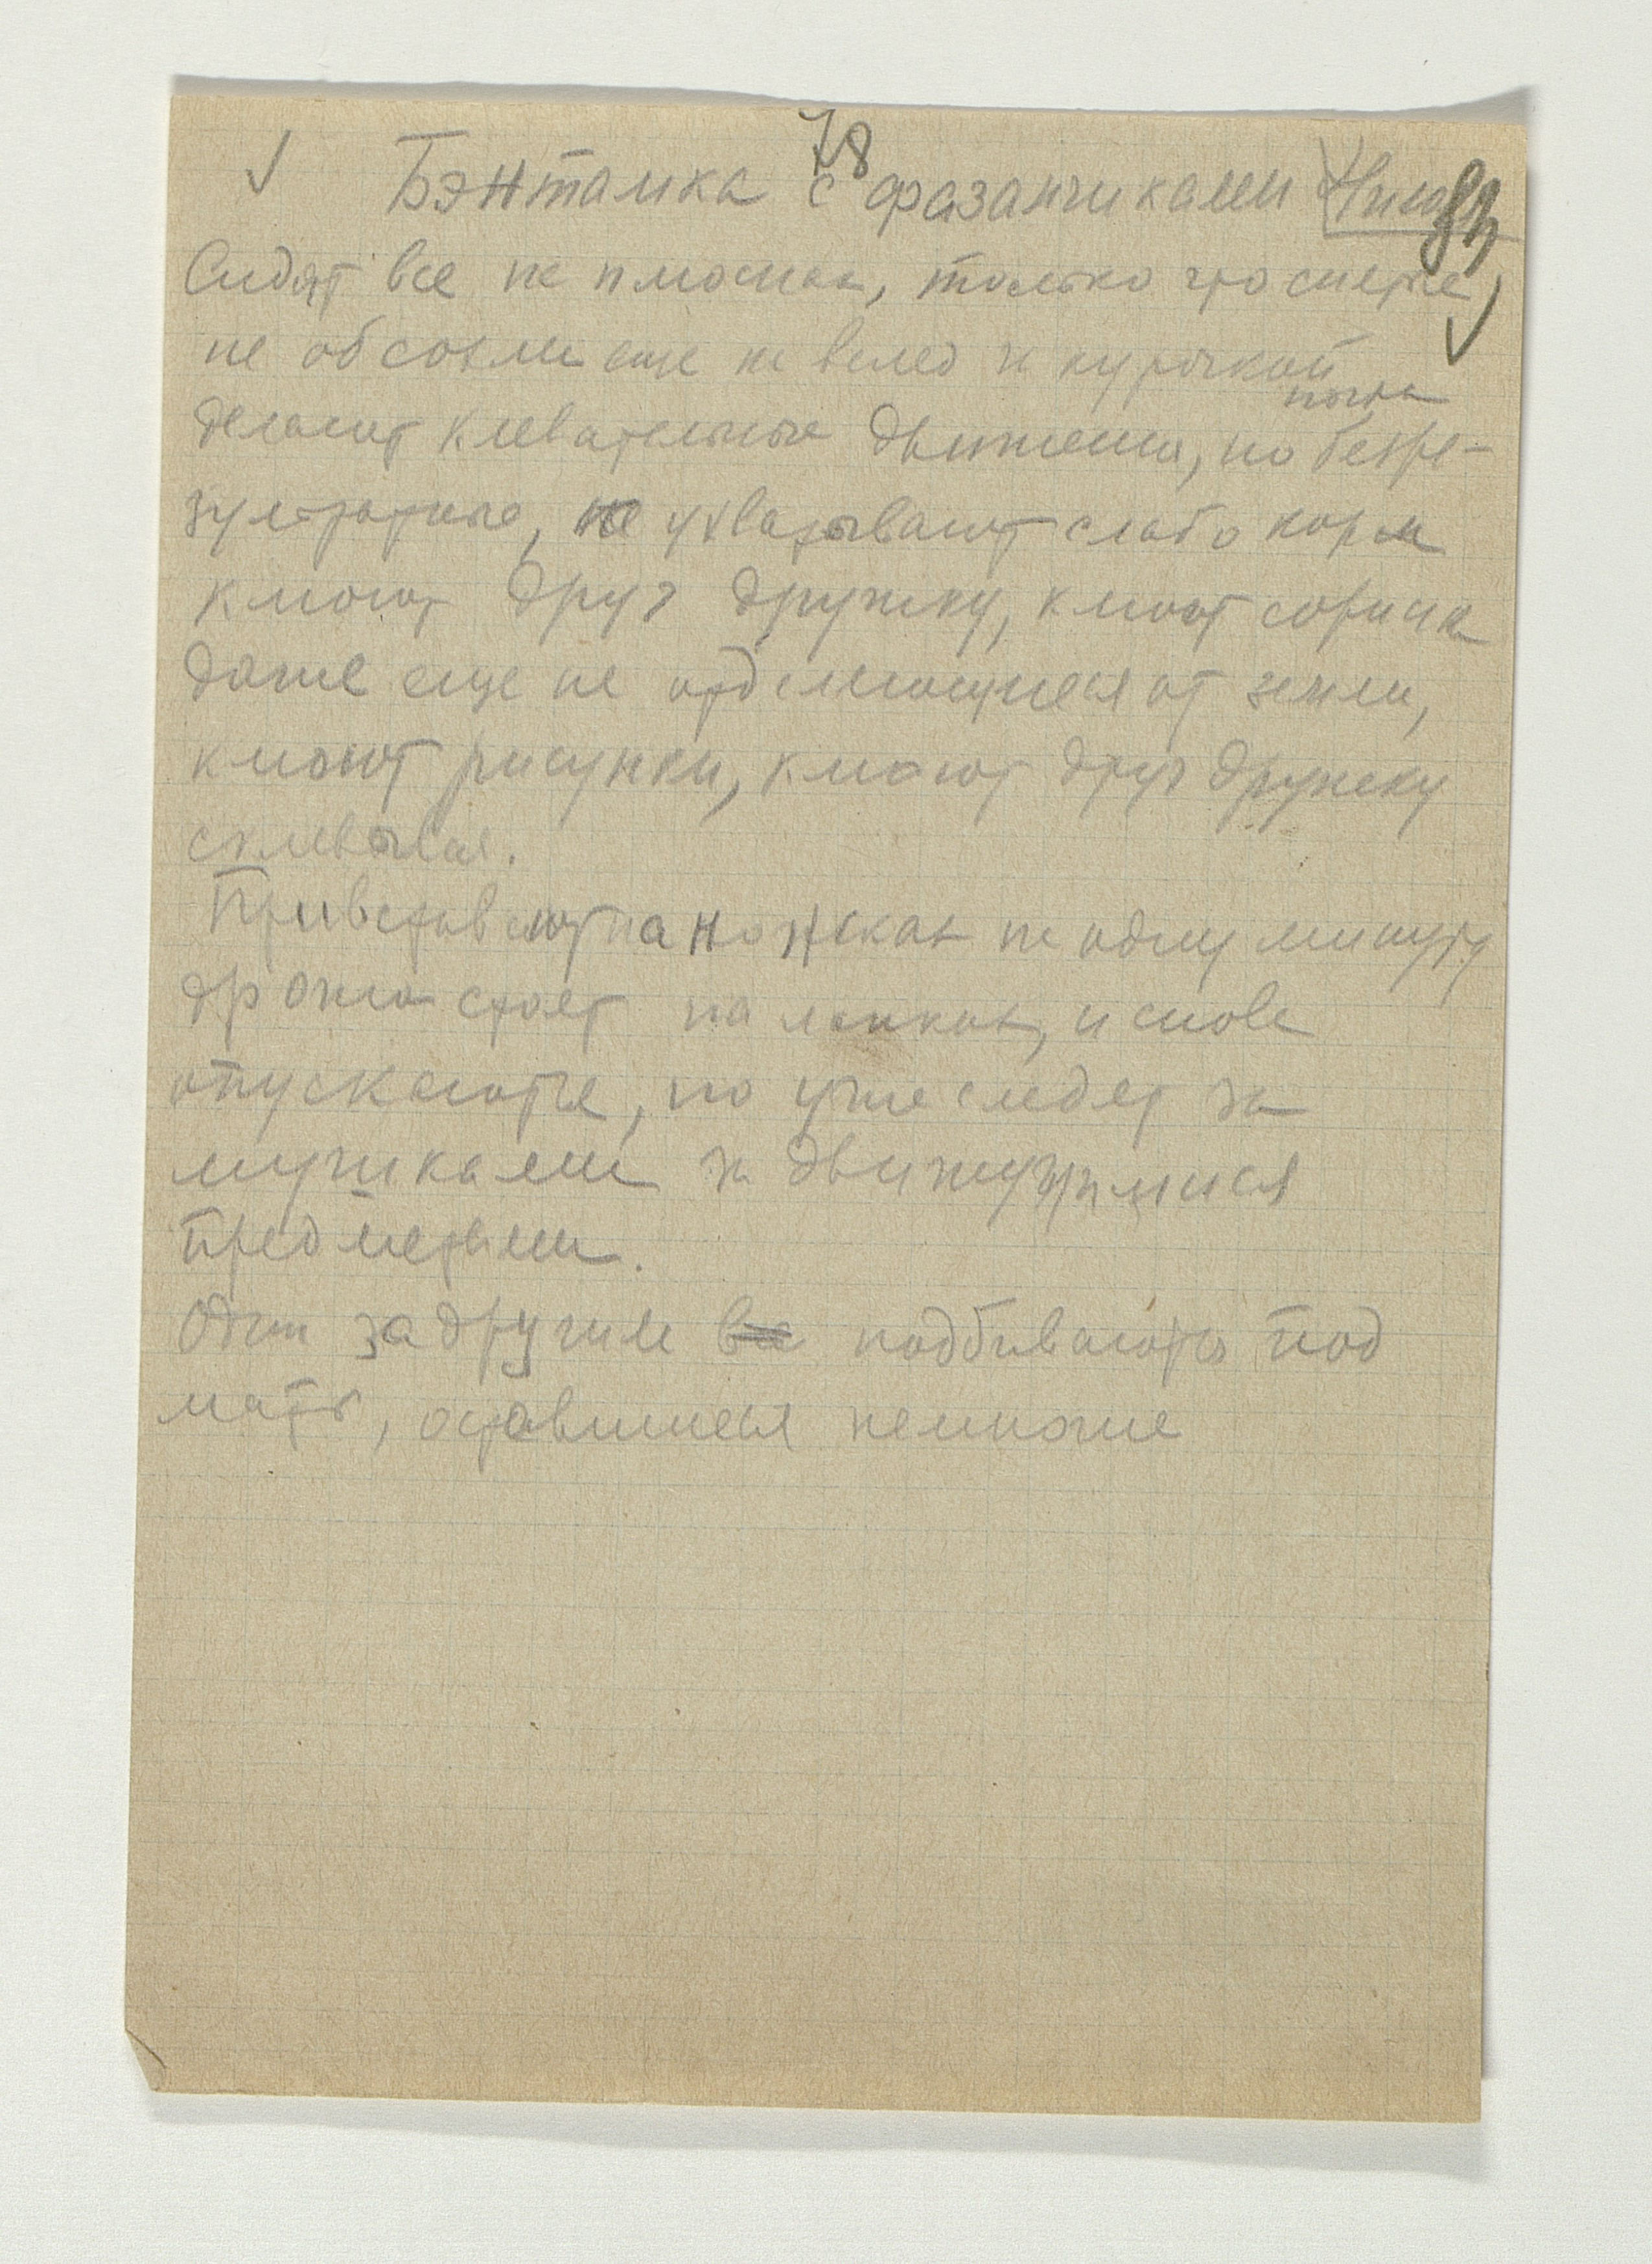 78
Бэнтамка с фазанчиками
83
Сидят все на плюснах, только что
не обсохли еще не вслед за курочкой
почти
делают клевательные движения, но безре-
зультатные, не ухватывают слабо корм
клюют друг дружку, клюют соринки
даже еще не отделяющиеся от земли,
клюют рисунки, клюют друг дружку
склевывая.
Привстав на ножках на одну минуту
дрожа стоят на лапках, и снова
опускаются, но уже следят за
мушками за движущимися
предметами.
Один за другим подбиваются под
мать, оставшиеся немногие